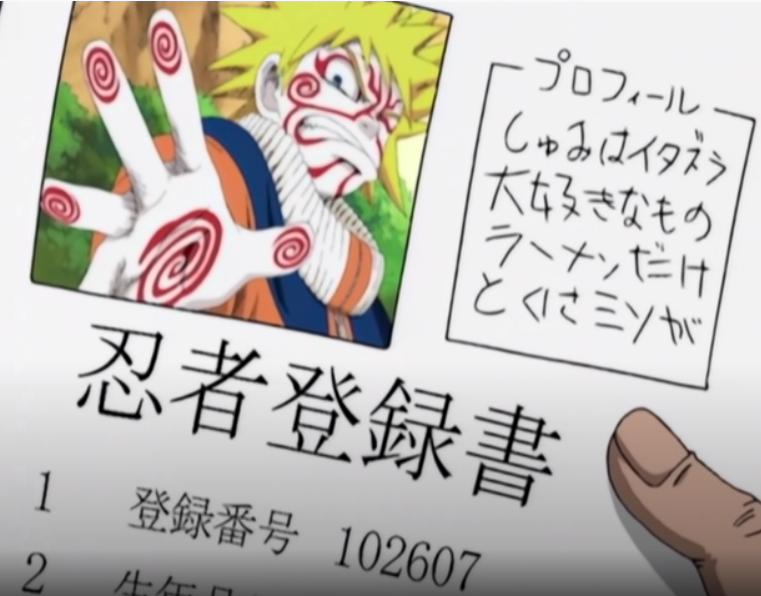 プロフィール
しゅみはイタズラ
大好きなもの
ラーメンだけ
とくにミソが
忍者登録書
1 登録番号 102607
2 生年月